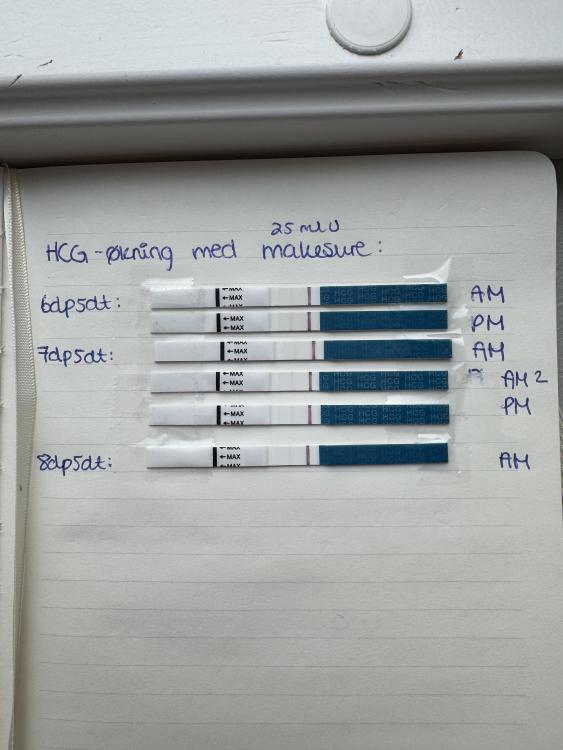 25 mlU
HCG-økning med makesure:
6dp5dt: ←MAX ←MAX HCG HCG HCG HCG AM
←MAX PM
7dp5dt: ←MAX HCG HCG HCG HCG AM
←MAX ←MAX HCG HCG HCG HCG AM 2
←MAX HCG HCG HCG HCG PM
8dp5dt: ←MAX AM